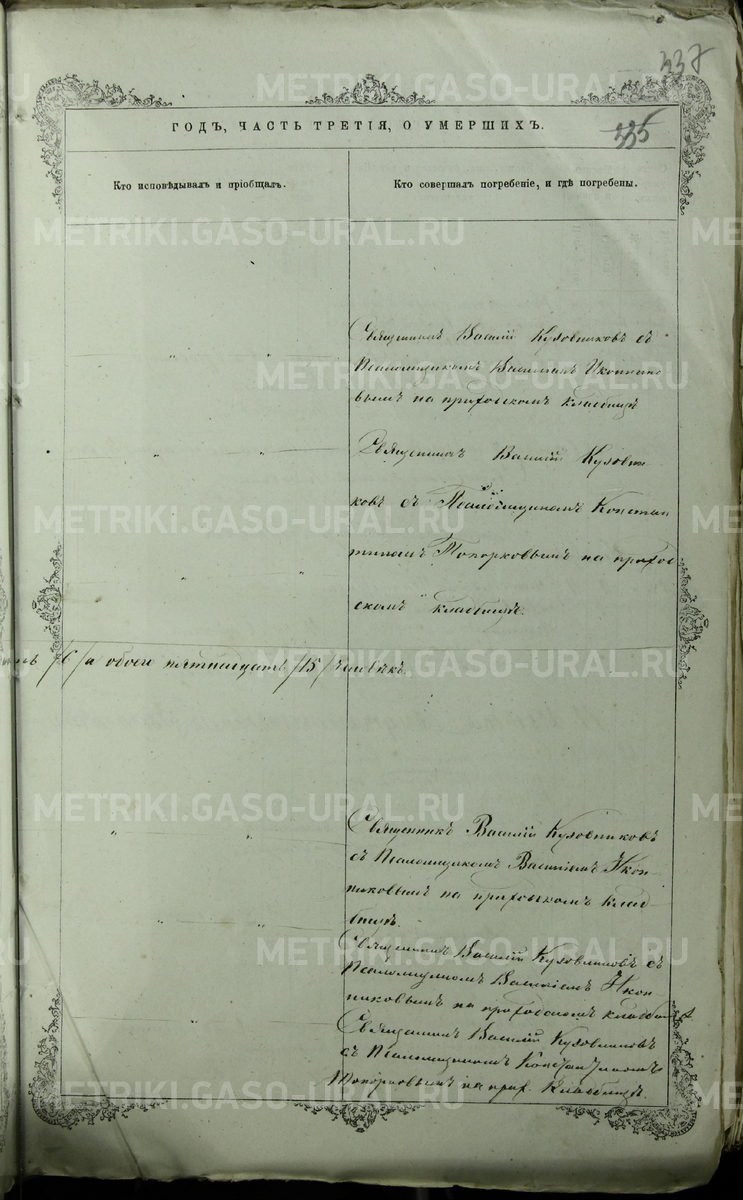 337
335
ГОДЪ, ЧАСТЬ ТРЕТІЯ, О УМЕРШИХЪ.
Кто исповѣдывалъ и пріобщалъ.
Кто совершалъ погребеніе, и гдѣ погребены.
Священникъ Василій Куховниковъ съ
Псаломщикомъ Василіемъ Иконнико
вымъ на приходскомъ кладбищѣ
Священникъ Василій Куховни
ковъ съ Псаломщикомъ Констан
тиномъ Топорковымъ на приход
скомъ кладбищѣ.
/6/ а обоего пятнадцать /15/ человѣкъ.
Священникъ Василій Куховниковъ
съ Псаломщикомъ Василіемъ Икон
никовымъ на приходскомъ клад
бищѣ.
Священникъ Василій Куховниковъ съ
Псаломщикомъ Василіемъ Икон
никовымъ на приходскомъ кладбищѣ
Священникъ Василій Куховниковъ
съ Псаломщикомъ Константиномъ
Топорковымъ на прих. кладбищѣ.
METRIKI.GASO-URAL.RU